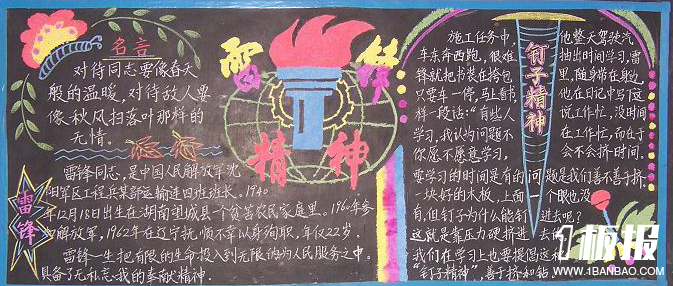 名言
对待同志要像春天
般的温暖，对待敌人要
像秋风扫落叶那样的
无情。
雷锋
精神
雷锋
雷锋同志，是中国人民解放军沈
阳军区工程兵某部运输连四班班长。1940
年12月18日出生在湖南望城县一个贫苦农民家庭里。1960年参
加解放军，1962年在辽宁抚顺不幸以身殉职，年仅22岁。
雷锋一生把有限的生命投入到无限的为人民服务之中。
具备了无私忘我的奉献精神。
钉子精神
施工任务中，他整天驾驶汽
车东奔西跑，很难抽出时间学习，雷
锋就把书装在挎包里，随身带在身边，
只要车一停，马上看书，他在日记中写下这
样一段话：“有些人说工作忙，没时间
学习，我认为问题不在工作忙，而在于
你愿不愿意学习，会不会挤时间。
要学习的时间是有的问题是我们善不善于挤，
一块好的木板，上面一个眼也没
有，但钉子为什么能钉进去呢？
这就是靠压力硬挤进去的
我们在学习上也要提倡这种
“钉子精神”，善于挤和钻
1板报
WWW.1BANBAO.COM